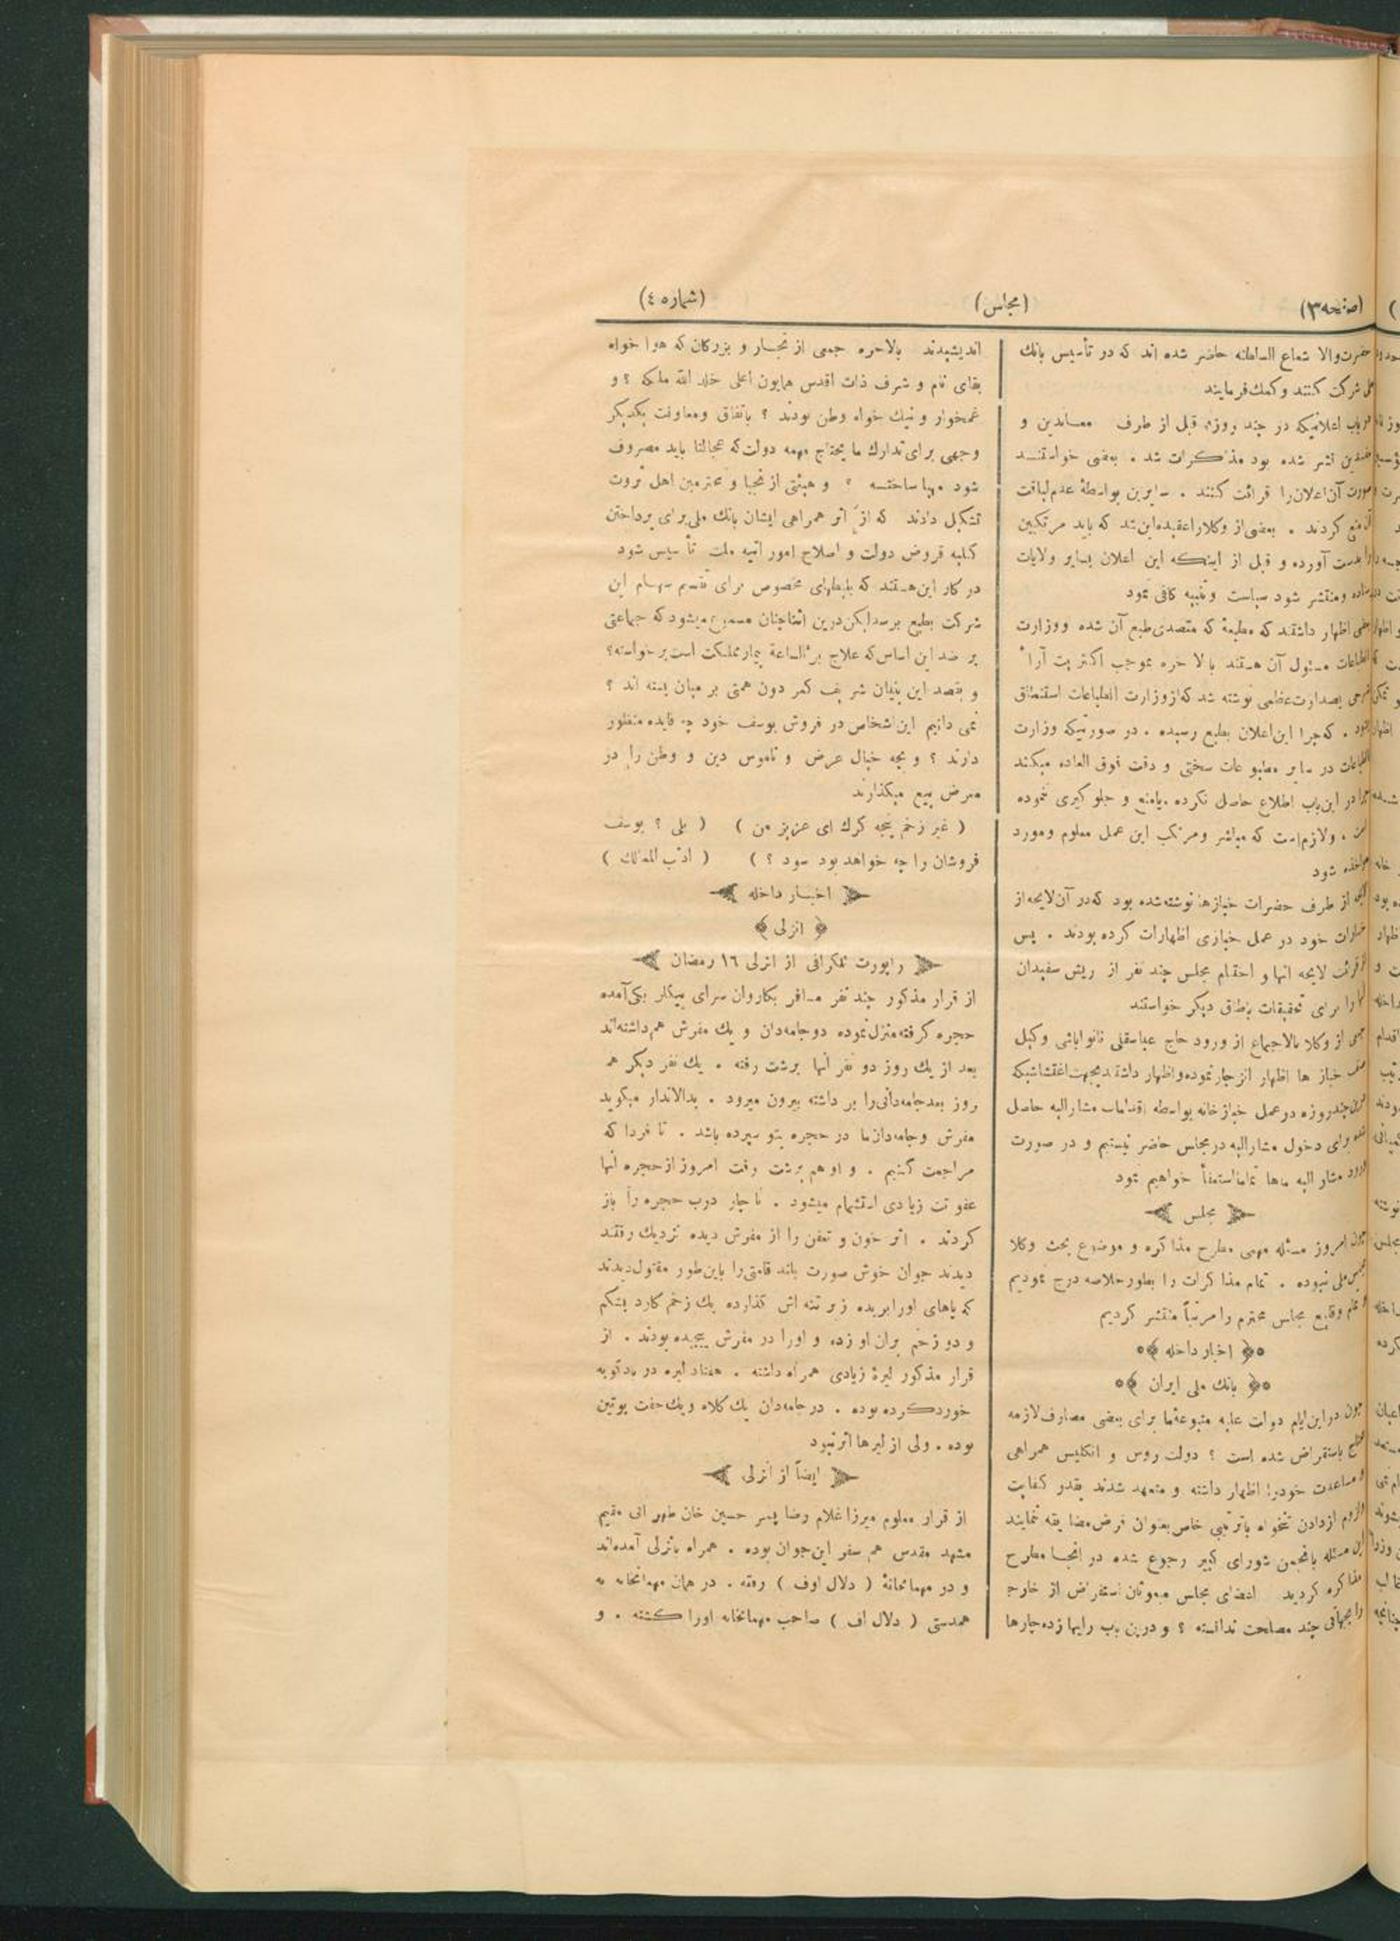 (صفحه ۳) (مجلس) (شماره ٤)
حضرت والا شعاع السلطنه حاضر شده اند که در تأسیس بانك
ملی شرکت کنند و کمك فرمایند
در باب اعلانیکه در چند روزه قبل از طرف معاندین و
مفسدین نشر شده بود مذاکرات شد . بعضی خواستند
صورت آن اعلان را قرائت کنند . سایرین بواسطهٔ عدم لیاقت
آن منع کردند . بعضی از وکلا را عقیده این شد که باید مرتکبین
را بدست آورده و قبل از اینکه این اعلان بسایر ولایات
ومنتشر شود سیاست و تنبیه کافی نمود
بعضی اظهار داشتند که مطبعهٔ که متصدی طبع آن شده ووزارت
انطباعات مسئول آن هستند بالاخره بموجب اکثریت آراء
شرحی بصدارت عظمی نوشته شد که از وزارت انطباعات استنطاق
شود . که چرا این اعلان بطبع رسیده . در صورتیکه وزارت
انطباعات در سایر مطبوعات سختی و دقت فوق العاده میکند
چرا در این باب اطلاع حاصل نکرده یا منع و جلوگیری ننموده
است . ولازم است که مباشر ومرتکب این عمل معلوم ومورد
مؤاخذه شود
از طرف حضرات خبازها نوشته شده بود که در آن لایحه از
خسارات خود در عمل خبازی اظهارات کرده بودند . پس
از قرائت لایحه آنها و اختتام مجلس چند نفر از ریش سفیدان
آنها را برای تحقیقات باطاق دیگر خواستند
جمعی از وکلا بالاجماع از ورود حاج عباسقلی نانوا باشی وکیل
صنف خباز ها اظهار انزجار نموده واظهار داشتند بجهت اغتشاشیکه
درین چندروزه در عمل خباز خانه بواسطه اقدامات مشارالیه حاصل
شده برای دخول مشارالیه در مجلس حاضر نیستیم و در صورت
ورود مشار الیه ماها تماما استعفأ خواهیم نمود
مجلس
چون امروز مسئله مهمی مطرح مذاکره و موضوع بحث وکلا
مجلس ملی نبوده . تمام مذاکرات را بطور خلاصه درج نمودیم
و تمام وقایع مجلس محترم را مرتباً منتشر کردیم
اخبار داخله
بانك ملی ایران
چون در این ایام دولت علیه متبوعهٔ ما برای بعضی مصارف لازمه
باستقراض شده است ؟ دولت روس و انگلیس همراهی
و مساعدت خود را اظهار داشته و متعهد شدند بقدر کفایت
ولزوم از دادن تنخواه با ترتیبی خاص بعنوان قرض مضایقه ننمایند
این مسئله بانجمن شورای کبیر رجوع شده در آنجا مطرح
مذاکره گردید اعضای مجلس مبعوثان استقراض از خارج
را بجهاتی چند مصلحت ندانسته ؟ و درین باب رایها زده چارها
اندیشیدند بالاخره جمعی از تجار و بزرگان که هوا خواه
بقای نام و شرف ذات اقدس همایون اعلی خلد الله ملکه ؟ و
غمخوار و نیك خواه وطن بودند ؟ باتفاق ومعاونت یکدیگر
وجهی برای تدارك ما یحتاج مهمه دولت که عجالتا باید مصروف
شود مهیا ساختسه ؟ و هیئتی از نجبا و محترمین اهل ثروت
تشکیل دادند که از اثر همراهی ایشان بانك ملی برای پرداختن
کلیه قروض دولت و اصلاح امور آتیه ملت تأسیس شود
در کار این هستند که بلیطهای مخصوص برای تقسیم سهام این
شرکت بطبع برسد لیکن درین اثنا چنان مسموع میشود که جماعتی
بر ضد این اساس که علاج برءالساعة بیمار مملکت است برخواسته ؟
و بقصد این بنیان شریف کمر دون همتی بر میان بسته اند ؟
نمی دانیم این اشخاص در فروش یوسف خود چه فایده منظور
دارند ؟ و بچه خیال عرض و ناموس دین و وطن را در
معرض بیع میگذارند
( غیر زخم پنجه گرك ای عزیز من ) ( بلی ؟ یوسف
فروشان را چه خواهد بود سود ؟ ) ( ادیب الممالك )
اخبار داخله
انزلی
راپورت تلگرافی از انزلی ١٦ رمضان
از قرار مذکور چند نفر مسافر بکاروان سرای بیگلر بیکی آمده
حجره گرفته منزل نموده دو جامه دان و یك مفرش هم داشته اند
بعد از یك روز دو نفر آنها برشت رفته . یك نفر دیگر هم
روز بعد جامه دانی را بر داشته بیرون میرود . بدالاندار میگوید
مفرش وجامه دان ما در حجره بتو سپرده باشد . تا فردا که
مراجعت کنیم . و او هم برشت رفت امروز از حجره آنها
عفونت زیادی استشمام میشود . ناچار درب حجره را باز
کردند . اثر خون و تعفن را از مفرش دیده نزدیك رفتند
دیدند جوان خوش صورت بلند قامتی را باین طور مقتول دیدند
که پاهای اورا بریده زیر تنه اش گذارده یك زخم کارد بشکم
و دو زخم بران او زده و اورا در مفرش پیچیده بودند . از
قرار مذکور لیرهٔ زیادی همراه داشته . هفتاد لیره در بادکوبه
خورد کرده بوده . در جامه دان یك کلاه ویك جفت پوتین
بوده . ولی از لیرها اثر نبود
ایضاً از انزلی
از قرار معلوم میرزا غلام رضا پسر حسین خان طهرانی مقیم
مشهد مقدس هم سفر این جوان بوده . همراه بانزلی آمده اند
و در مهمانخانهٔ ( دلال اوف ) رفته . در همان مهمانخانه به
همدستی ( دلال اف ) صاحب مهمانخانه اورا کشته . و